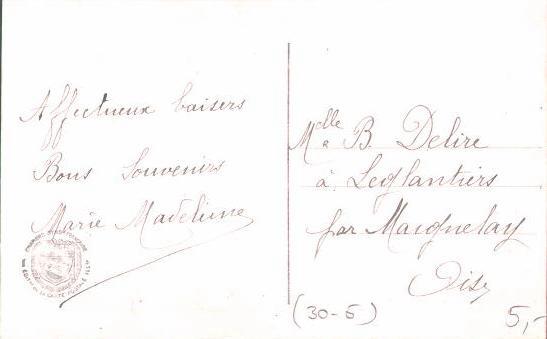 Affectueux baisers
Bons Souvenirs
Marie Madeleine
Melle B. Delire
à Léglantiers
par Maignelay
Oise
(30-5)
5,-